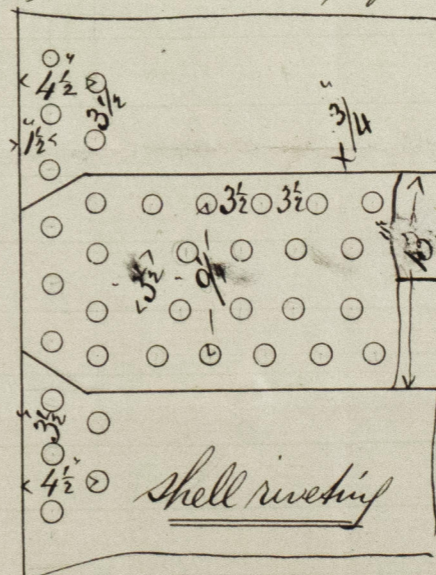 4 1/2"
3 1/2
1 1/2"
3/4"
3 1/2 3 1/2
3 1/2
3 1/2
4 1/2"
shell riveting